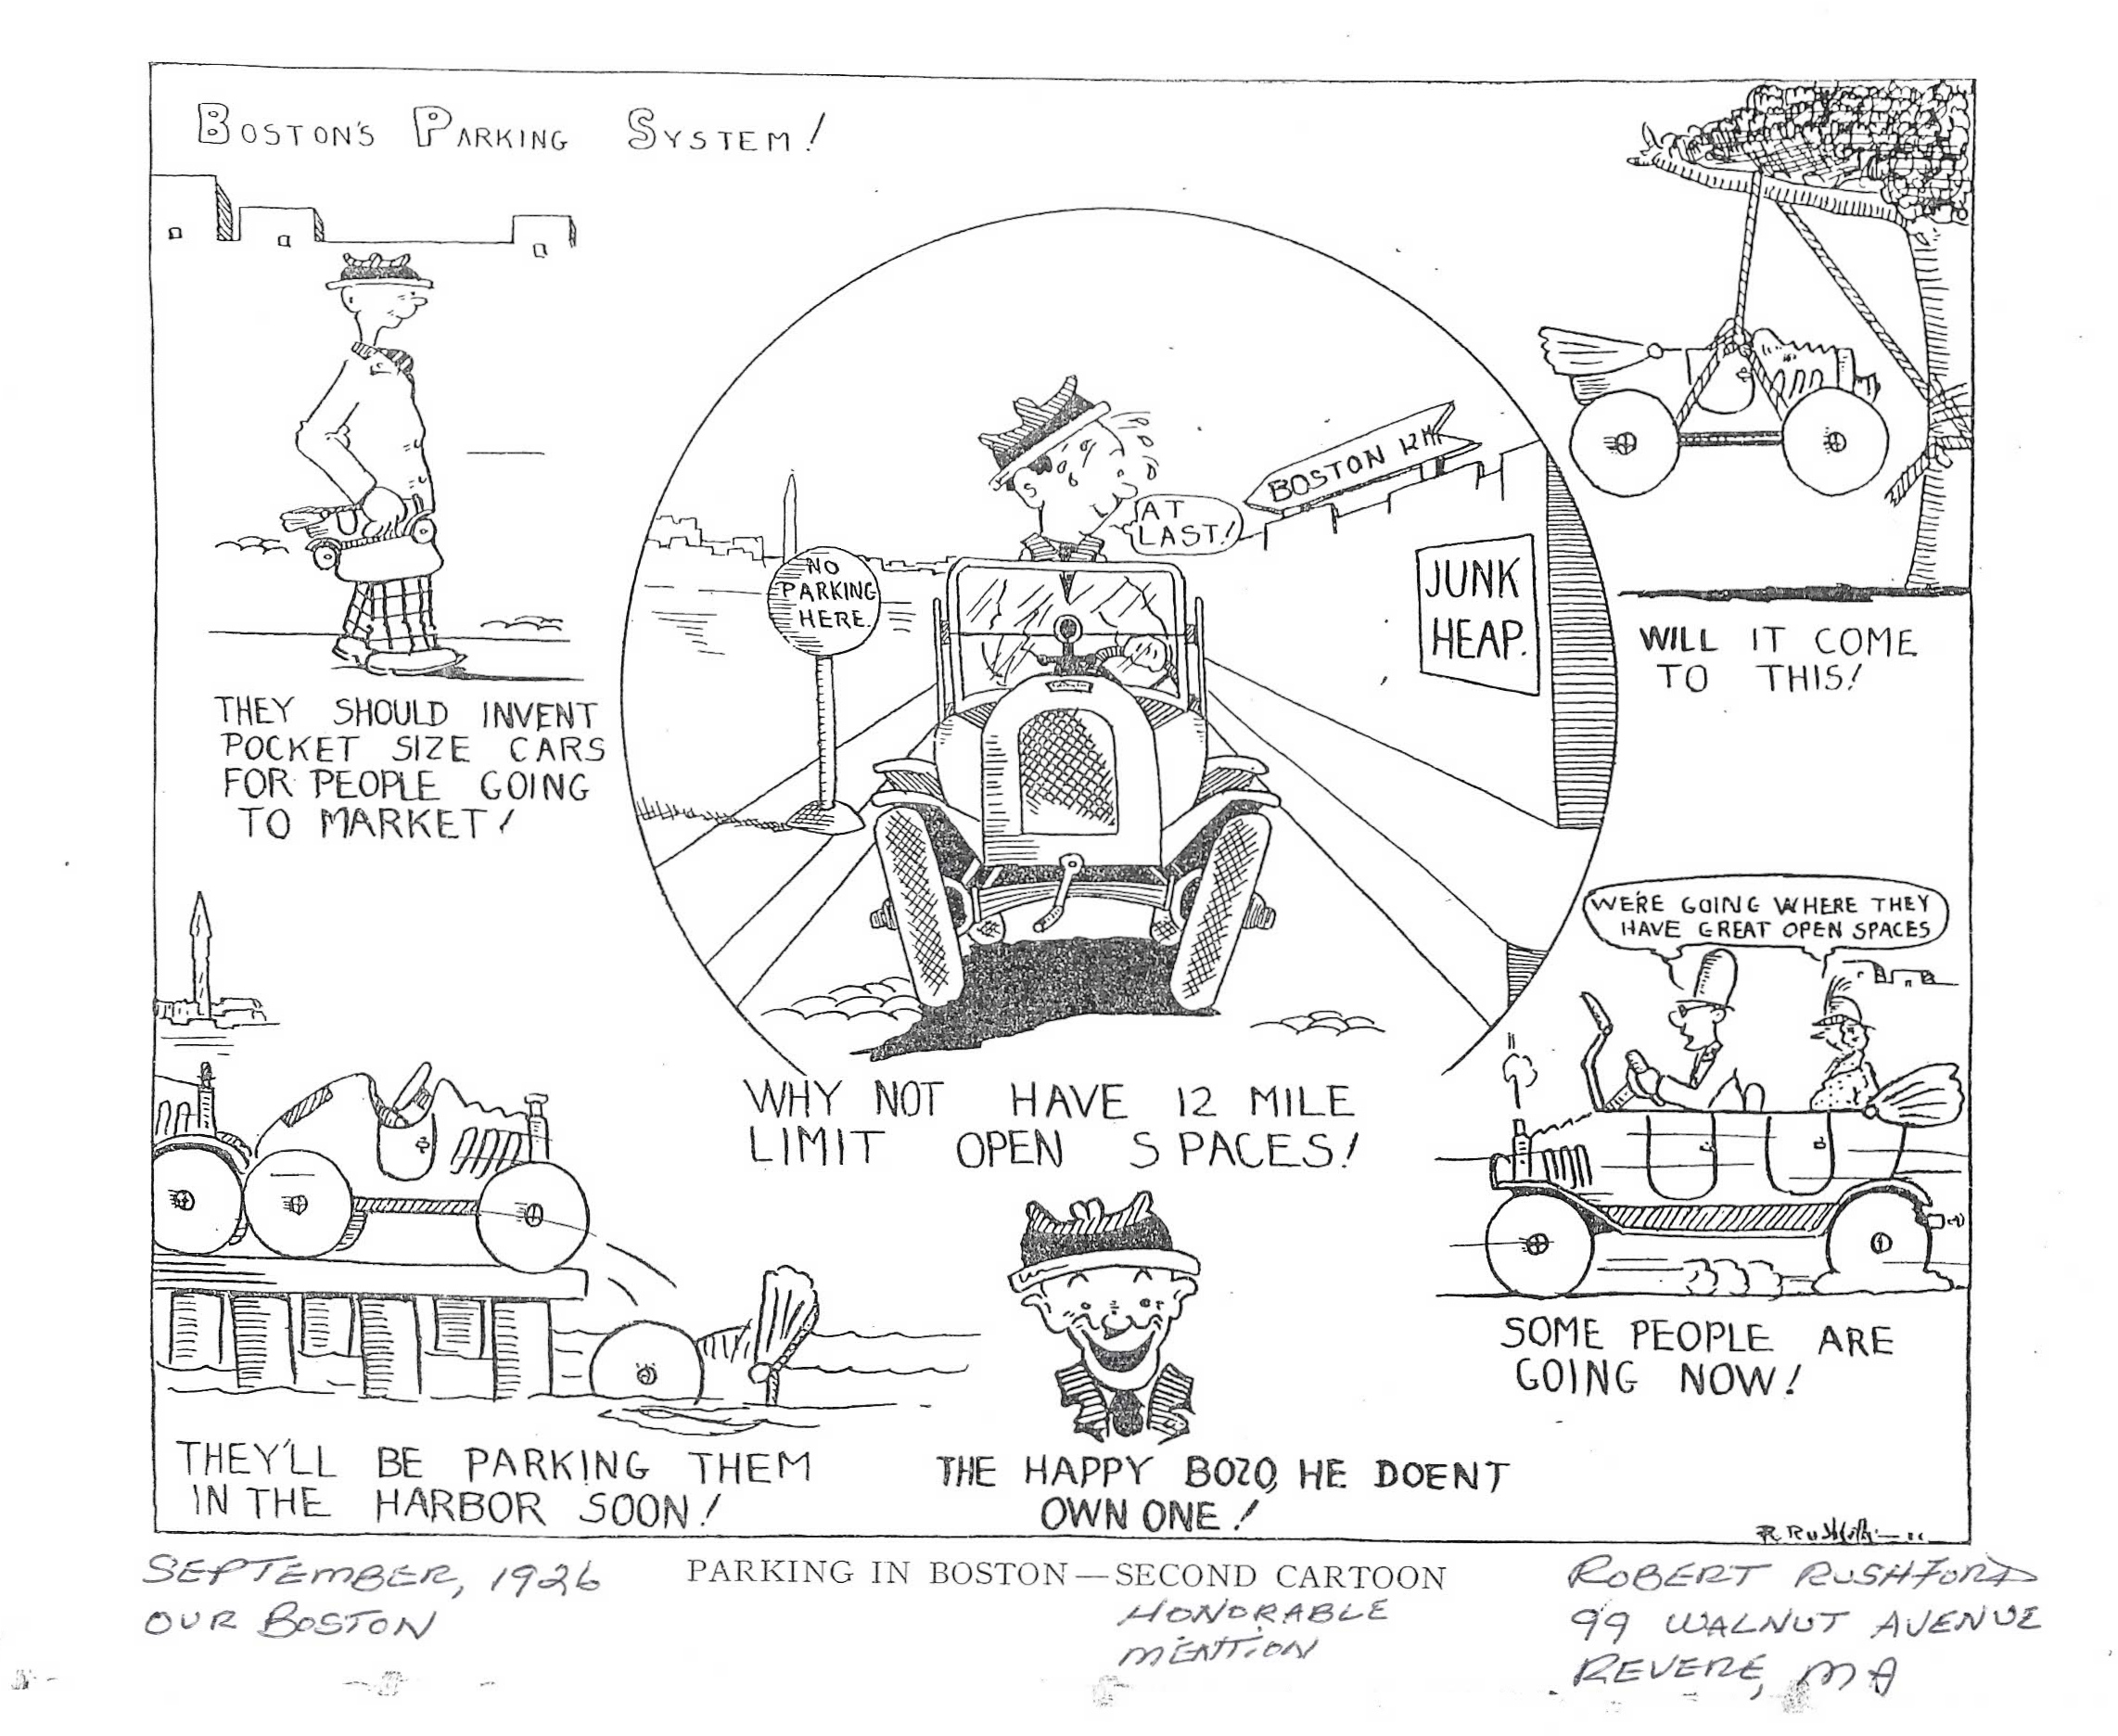 BOSTON'S PARKING SYSTEM!
THEY SHOULD INVENT
POCKET SIZE CARS
FOR PEOPLE GOING
TO MARKET!
NO
PARKING
HERE.
AT
LAST!
BOSTON 12M
JUNK
HEAP.
WILL IT COME
TO THIS!
WHY NOT HAVE 12 MILE
LIMIT OPEN SPACES!
WE'RE GOING WHERE THEY
HAVE GREAT OPEN SPACES
SOME PEOPLE ARE
GOING NOW!
THEY'LL BE PARKING THEM
IN THE HARBOR SOON!
THE HAPPY BOZO, HE DOENT
OWN ONE!
PARKING IN BOSTON—SECOND CARTOON
HONORABLE
MENTION
SEPTEMBER, 1926
OUR BOSTON
ROBERT RUSHFORD
99 WALNUT AVENUE
REVERE, MA